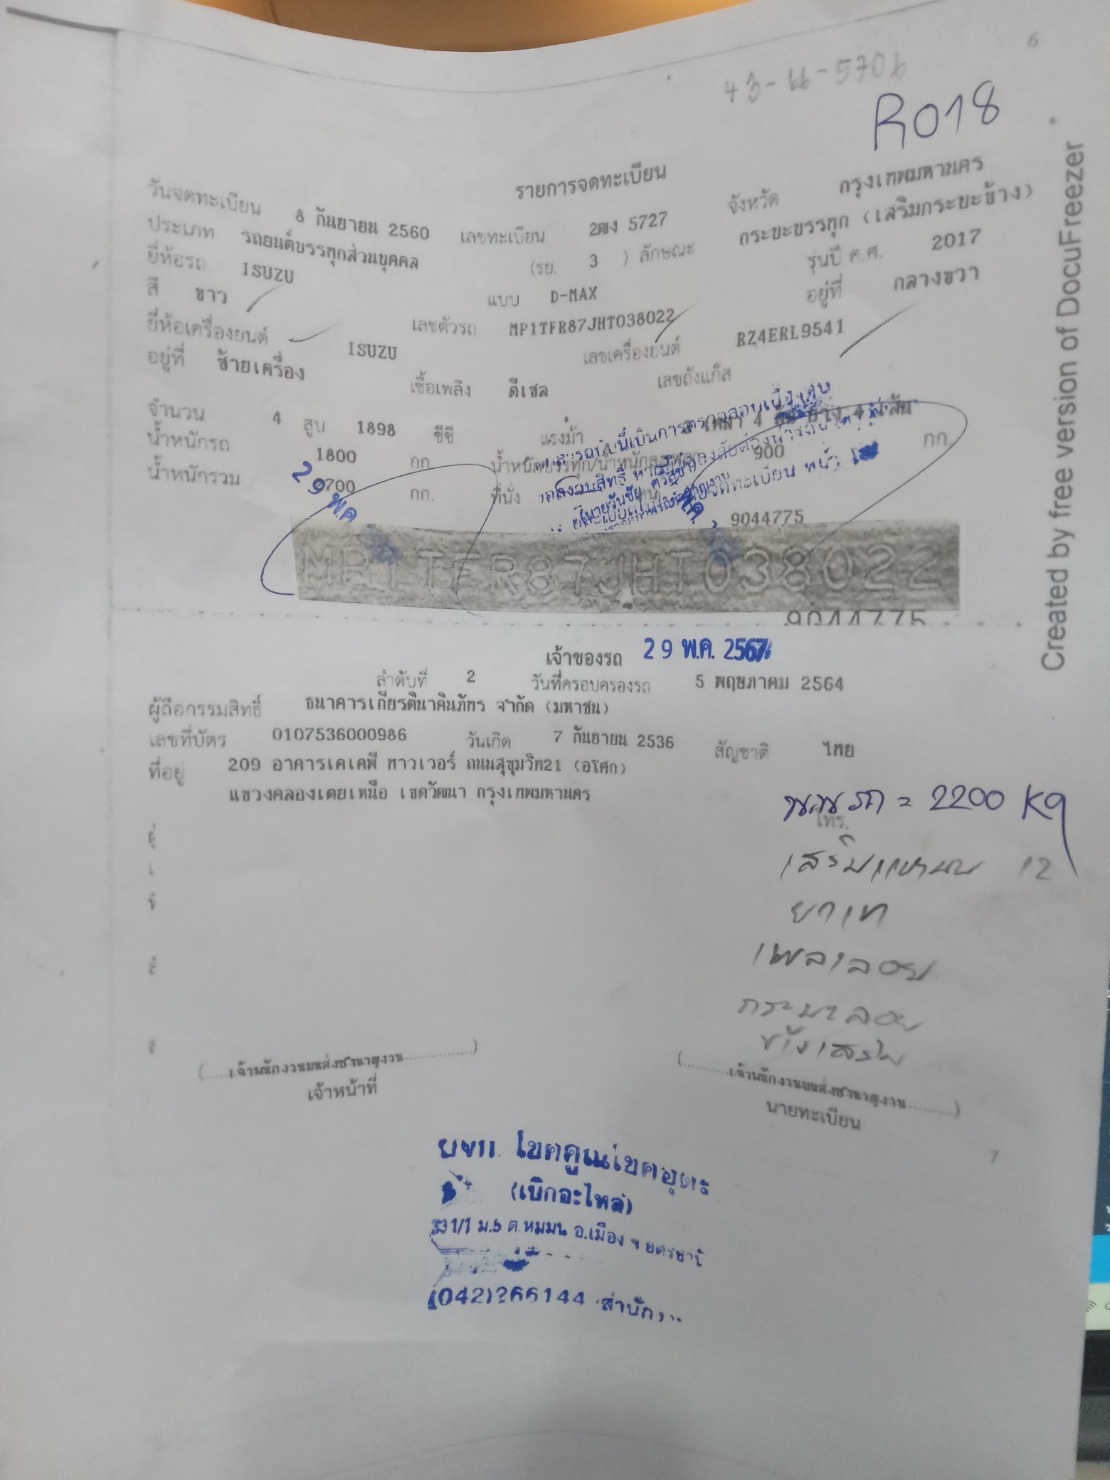 6
43-66-5706
R018
รายการจดทะเบียน
วันจดทะเบียน 8 กันยายน 2560 เลขทะเบียน 2ฒง 5727 จังหวัด กรุงเทพมหานคร
ประเภท รถยนต์บรรทุกส่วนบุคคล (รย. 3 ) ลักษณะ กระบะบรรทุก (เสริมกระบะข้าง)
ยี่ห้อรถ ISUZU แบบ D-MAX รุ่นปี ค.ศ. 2017
สี ขาว เลขตัวรถ MP1TFR87JHT038022 อยู่ที่ กลางขวา
ยี่ห้อเครื่องยนต์ ISUZU เลขเครื่องยนต์ RZ4ERL9541
อยู่ที่ ซ้ายเครื่อง เชื้อเพลิง ดีเซล เลขถังแก๊ส
จำนวน 4 สูบ 1898 ซีซี แรงม้า
น้ำหนักรถ 1800 กก. 900 กก.
น้ำหนักรวม 2700 กก. ที่นั่ง
29 พ.ค.
9044775
MP1TFR87JHT038022
9044775
เจ้าของรถ 29 พ.ค. 2567
ลำดับที่ 2 วันที่ครอบครองรถ 5 พฤษภาคม 2564
ผู้ถือกรรมสิทธิ์ ธนาคารเกียรตินาคินภัทร จำกัด (มหาชน)
เลขที่บัตร 0107536000986 วันเกิด 7 กันยายน 2536 สัญชาติ ไทย
ที่อยู่ 209 อาคารเคเคพี ทาวเวอร์ ถนนสุขุมวิท21 (อโศก)
แขวงคลองเตยเหนือ เขตวัฒนา กรุงเทพมหานคร
โทร.
นน.รถ = 2200 Kg
เสริมแหนบ 12
ยกเท
เพลาลอย
กระบะลอย
ข้างเสริม
(....เจ้าพนักงานขนส่งชำนาญงาน..............)
เจ้าหน้าที่
(..........เจ้าพนักงานขนส่งชำนาญงาน..........)
นายทะเบียน
7
บจก. โชคคูณโชคอุดร
(เบิกอะไหล่)
ม.5 ต.หมูม่น อ.เมือง จ.อุดรธานี
(042)266144 สำนัก
Created by free version of DocuFreezer